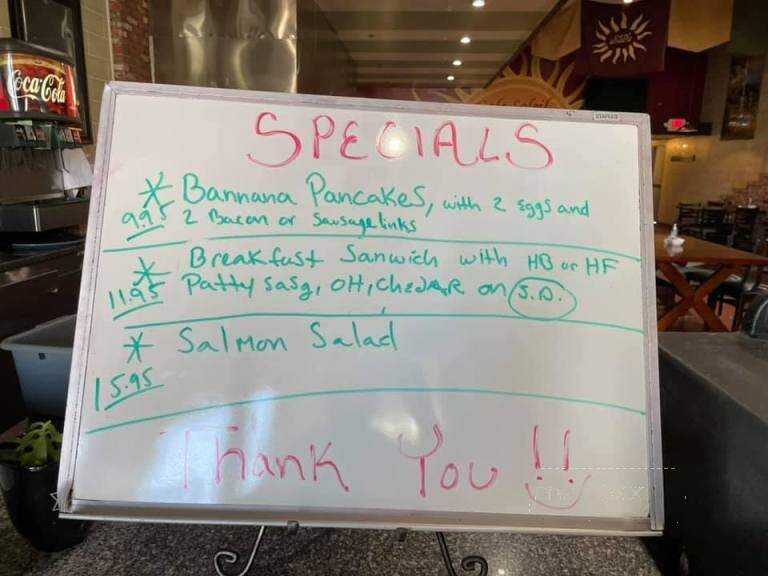 Coca-Cola
STAPLES
SPECIALS
* Bannana Pancakes, with 2 Eggs and
9.95 2 Bacon or Sausage links
* Breakfast Sanwich with HB or HF
11.95 Patty sasg, OH, chedar on S.D.
* Salmon Salad
15.95
Thank You !!